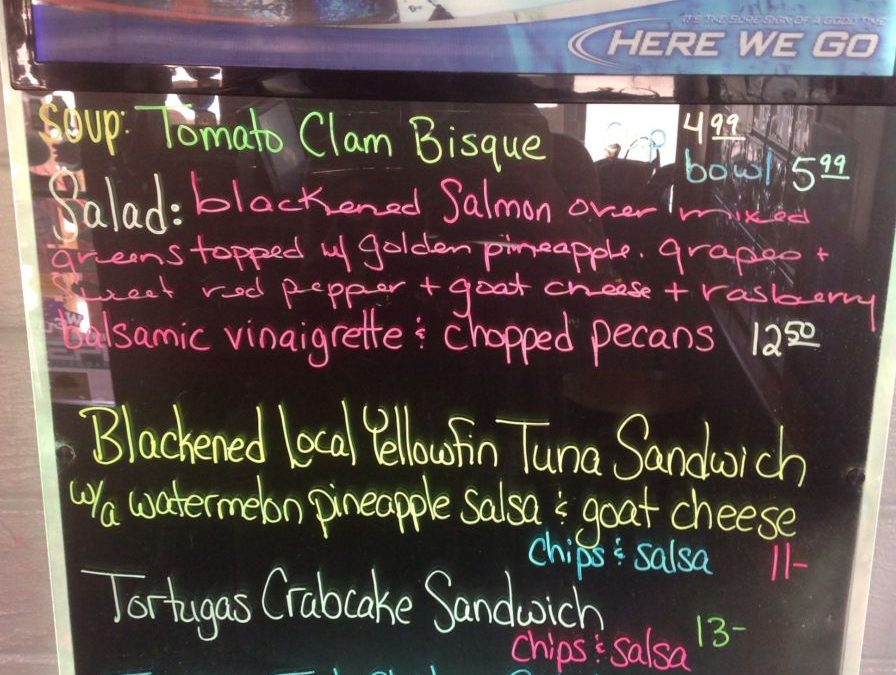 IT'S THE SURE SIGN OF A GOOD TIME
HERE WE GO
Soup: Tomato Clam Bisque cup 4.99
bowl 5.99
Salad: blackened Salmon over mixed
greens topped w/ golden pineapple, grapes +
sweet red pepper + goat cheese + rasberry
balsamic vinaigrette & chopped pecans 12.50
Blackened Local Yellowfin Tuna Sandwich
w/a watermelon pineapple salsa & goat cheese
chips & salsa 11-
Tortugas Crabcake Sandwich
chips & salsa 13-